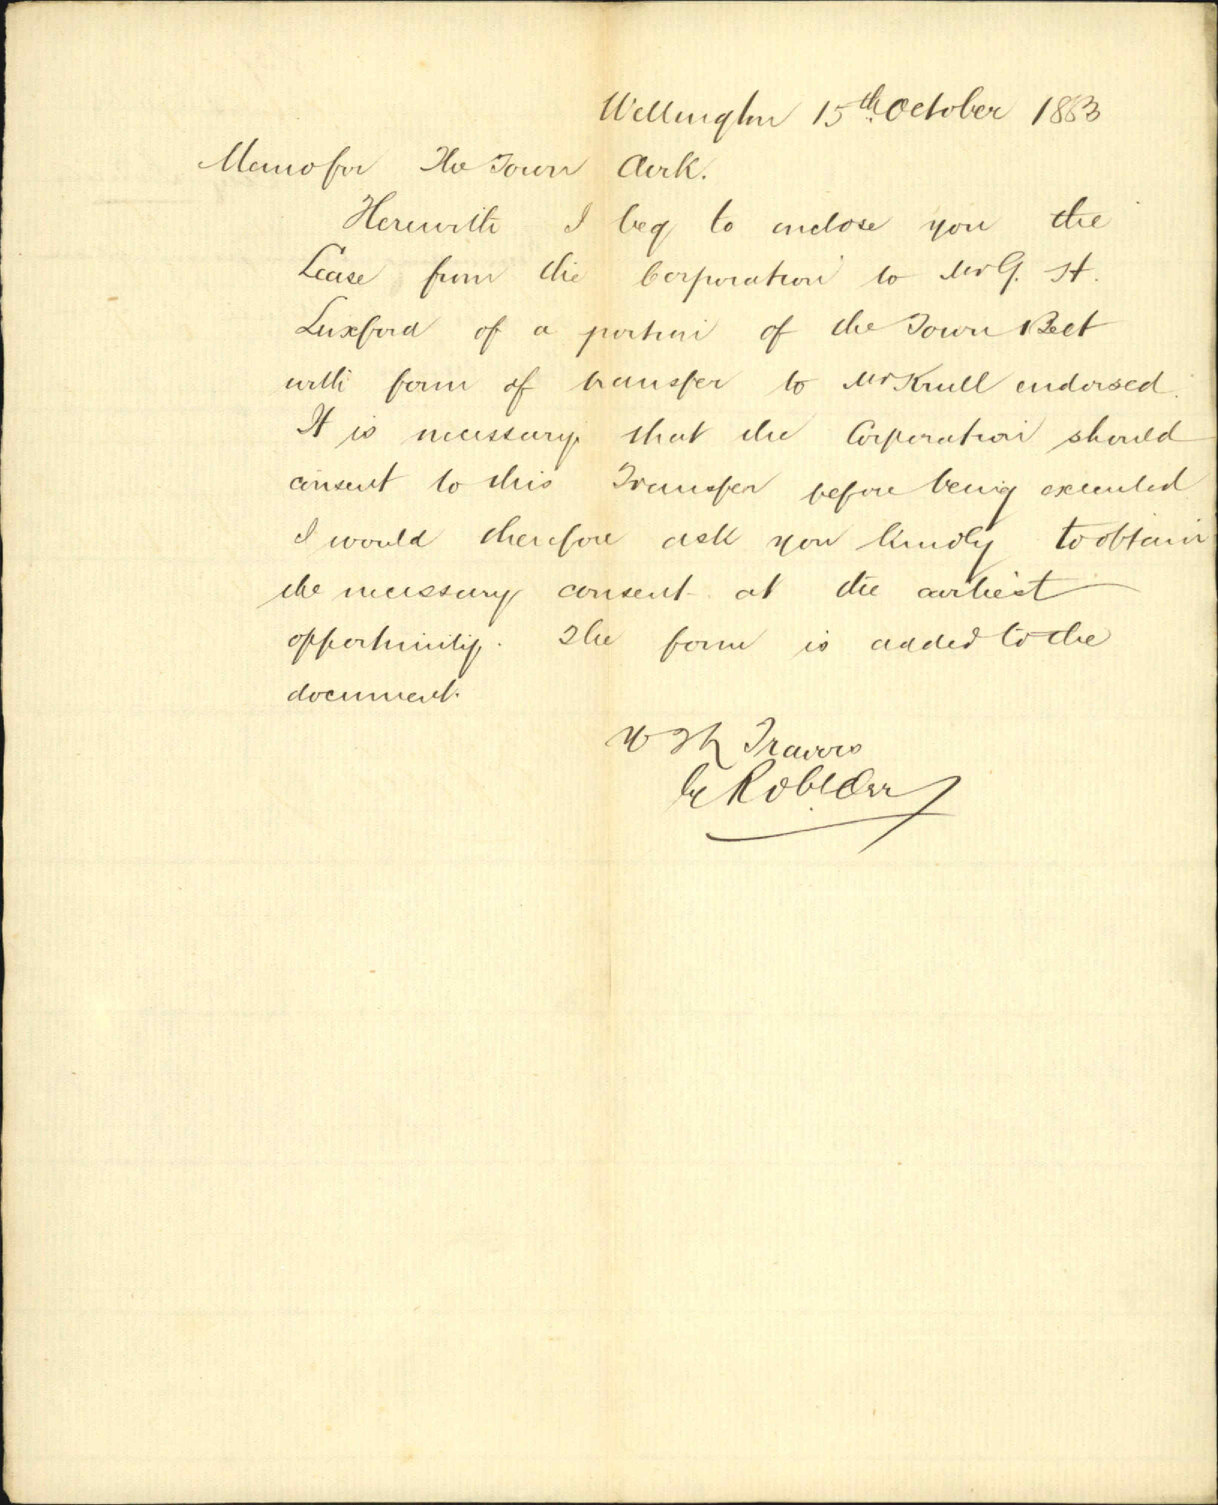 Wellington 15th October 1883
Memo for The Town Clerk.
Herewith I beg to enclose you the
Lease from the Corporation to Mr G. H.
Luxford of a portion of the Town Belt
with form of transfer to Mr Krull endorsed.
It is necessary that the Corporation should
consent to this Transfer before being executed
I would therefore ask you kindly to obtain
the necessary consent at the earliest
opportunity. The form is added to the
document.
W T L Travers
Robt Orr